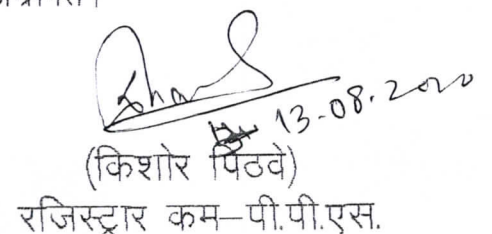 13-08-2020
(किशोर पिठवे)
रजिस्ट्रार कम–पी.पी.एस.